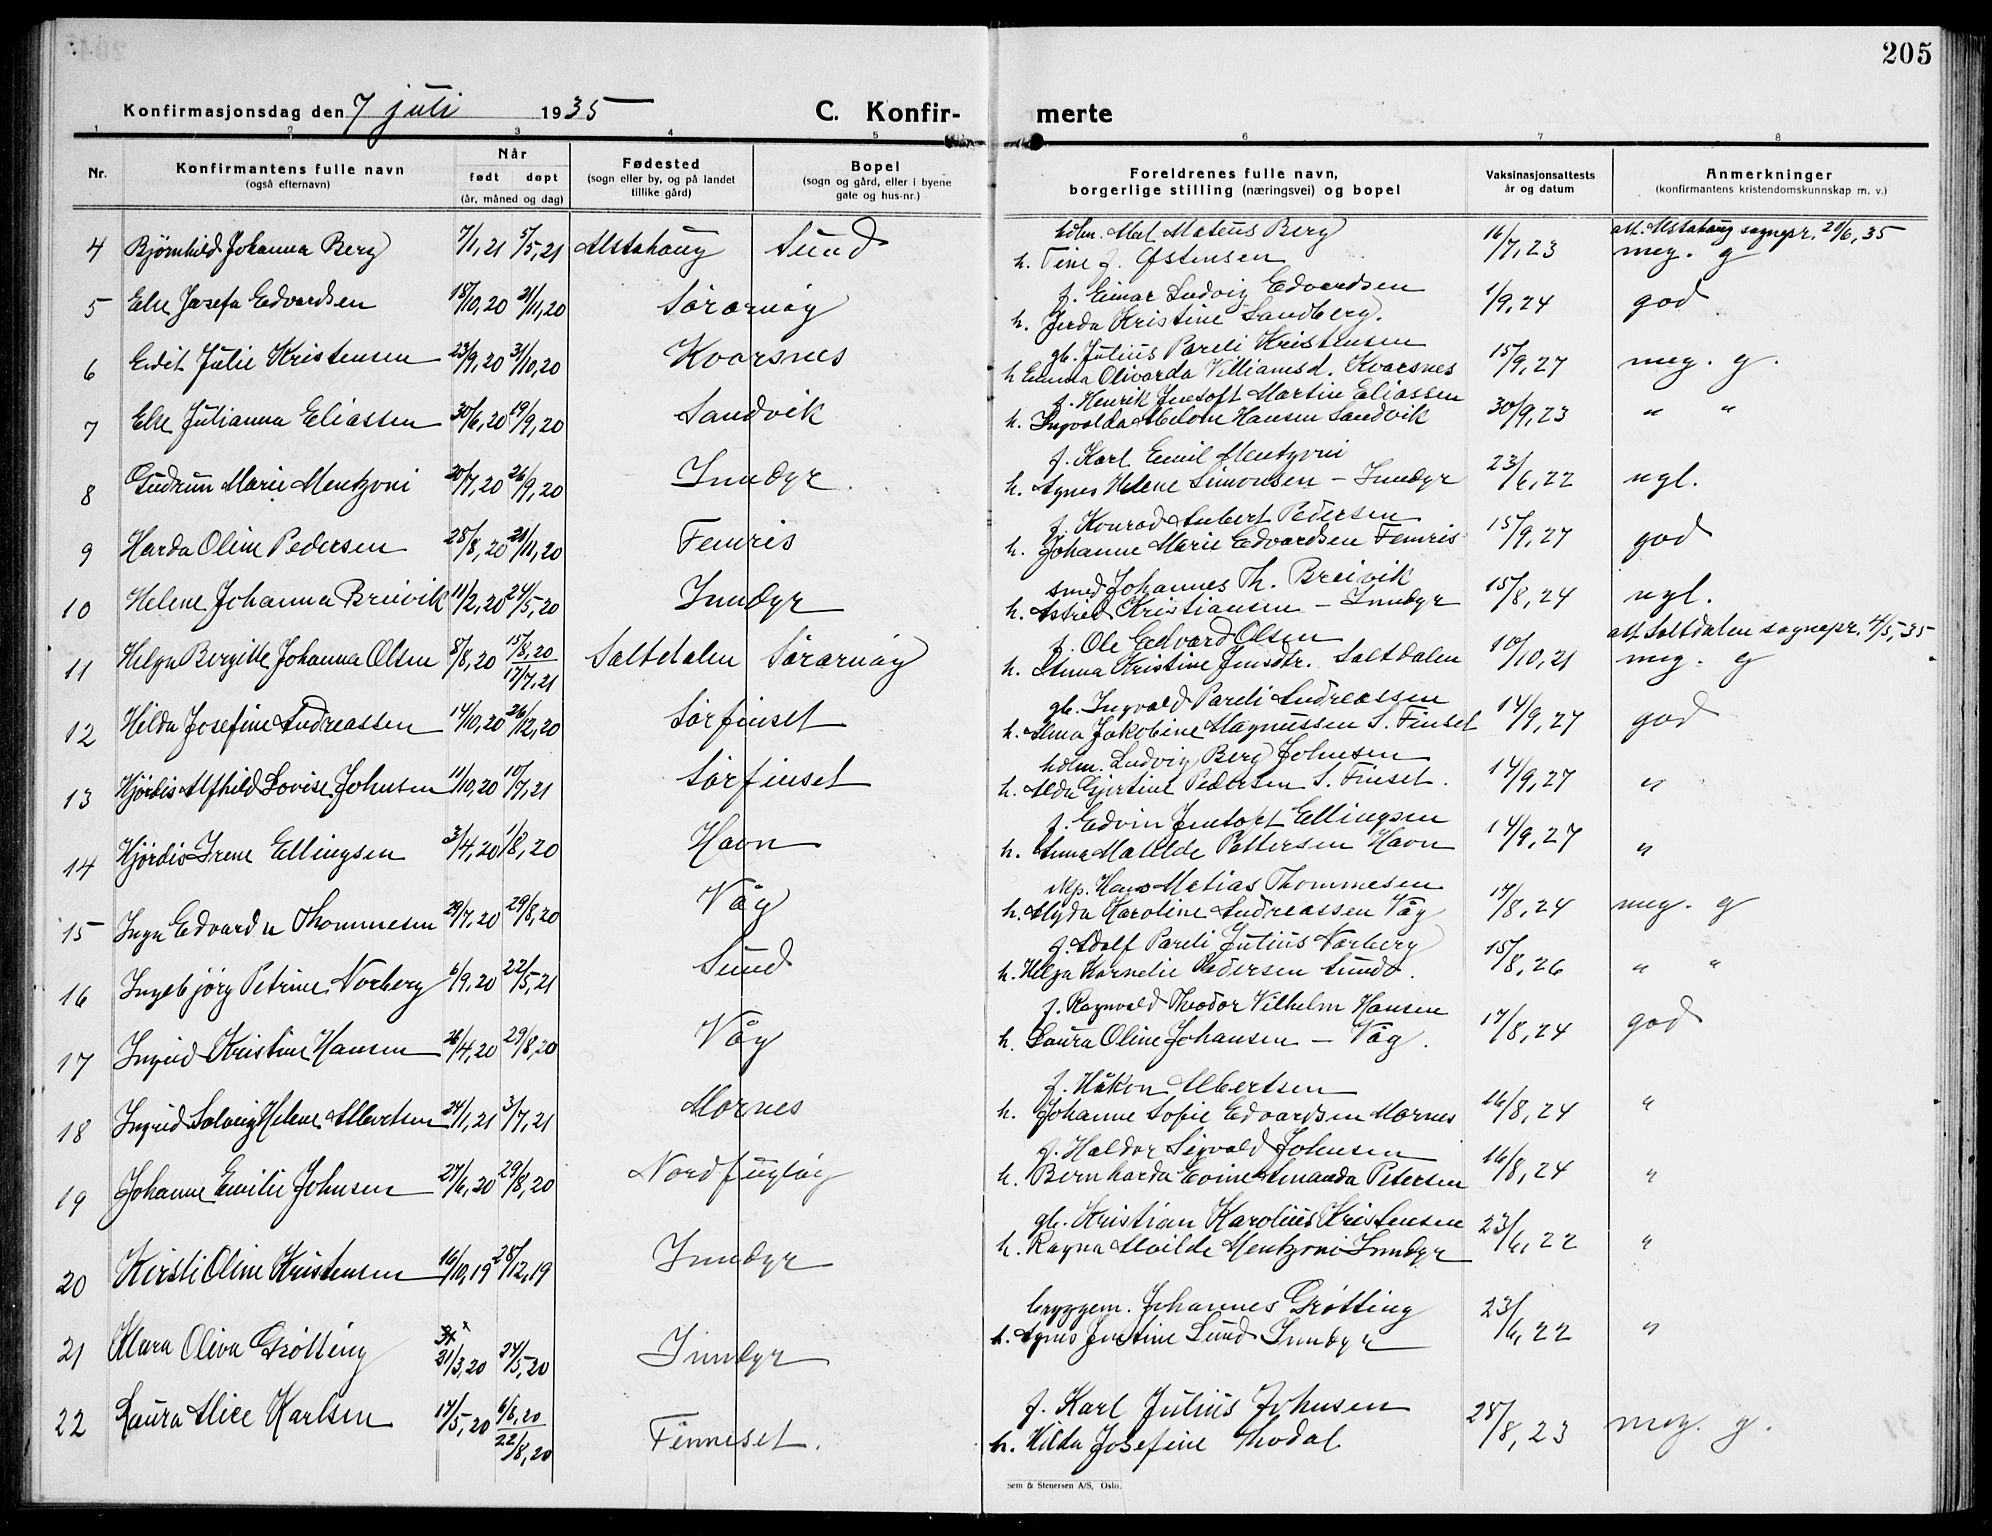 205
Konfirmasjonsdag den 7 juli 1935
C. Konfir- merte
1 2 3 4 5 6 7 8
Nr.
Konfirmantens fulle navn
(også efternavn)
Når
født døpt
(år, måned og dag)
Fødested
(sogn eller by, og på landet
tillike gård)
Bopel
(sogn og gård, eller i byene
gate og hus-nr.)
Foreldrenes fulle navn,
borgerlige stilling (næringsvei) og bopel
Vaksinasjonsattests
år og datum
Anmerkninger
(konfirmantens kristendomskunnskap m. v.)
4 Bjørnhild Johanna Berg 7/1,21 5/5,21 Alstahaug Sund
Mateus Berg 16/7,23 att. Alstahaug sognepr. 35
h. Tine J. Østensen meg. g
5 Else Josefa Edvardsen 18/10,20 21/11,20 Sørarnøy
f. Einar Ludvig Edvardsen 1/9,24 god
h. Jerda Kristine Sandberg.
6 Edit Julie Kristensen 23/9,20 31/10,20 Kvarsnes
gb. Julius Pareli Kristensen 15/9,27 meg. g.
h Emma Olivarda Villiamsd. Kvarsnes
7 Else Julianna Eliassen 30/6,20 19/9,20 Sandvik
f. Henrik Jentoft Martin Eliassen 30/9,23 " "
h. Ingvalda Hansen Sandvik
8 Gudrun Marie Mentzoni 20/7,20 26/9,20 Inndyr
f. Karl Emil Mentzoni 23/6,22 ngl.
h. Agnes Helene Simonsen - Inndyr
9 Harda Oline Pedersen 28/8,20 28/11,20 Femris
f. Konrad Pedersen 15/9,27 god
h. Johanne Marie Edvardsen Femris
10 Helene Johanna Breivik 11/2,20 24/5,20 Inndyr
smed Johannes Th. Breivik 15/8,24 ngl.
h. Astrid Kristiansen - Inndyr
11 Helga Bergitte Johanna Olsen 8/8,20 15/8,20 17/7,21 Saltdalen Sørarnøy
f. Ole Edvard Olsen 10/10,21 att. Saltdalen sognepr. 4/5,35
h. Anna Kristine Jensdtr. Saltdalen meg. g
12 Hilda Josefine Andreassen 14/10,20 26/12,20 Sørfinset
gb. Ingvald Pareli Andreassen 14/9,27 god
h. Alma Jakobine Magnussen S. Finset
13 Hjørdis Alfhild Lovise Johnsen 11/10,20 10/7,21 Sørfinset
Ludvig Berg Johnsen 14/9,27 "
h. Alda Gjertine Pedersen S. Finset.
14 Hjördis Irene Ellingsen 3/4,20 1/8,20 Havn
f. Edvin Jentoft Ellingsen 14/9,27 "
h. Anna Matilde Pettersen Havn
15 Inga Edvarda Thommesen 29/7,20 29/8,20 Våg
Hans Matias Thommesen 17/8,24 meg. g
h. Alyda Karoline Andreassen Våg
16 Ingebjörg Petrine Norberg 6/9,20 22/5,21 Sund
f. Adolf Pareli Julius Norberg 15/8,26 " "
h. Helga Kornelie Pedersen Sund.
17 Ingrid Kristine Hansen 26/4,20 29/8,20 Våg
f. Ragnvald Theodor Vilhelm Hansen 17/8,24 god
h. Laura Oline Johansen - Våg.
18 Ingrid Solveig Helene Albertsen 24/1,21 3/7,21 Mornes
f. Håkon Albertsen 16/8,24 "
h. Johanne Sofie Edvardsen Mornes
19 Johanne Emilie Johnsen 27/6,20 29/8,20 Nordfugløy
f. Haldor Sigvald Johnsen 16/8,24 "
h. Bernharda Evine Amanda Petersen
20 Kirsti Oline Kristensen 16/10,19 28/12,19 Inndyr
gb. Kristian Karolius Kristensen 23/6,22 "
h. Ragna Alvilde Mentzoni Inndyr
21 Klara Oliva Grøtting 31/3,20 24/5,20 Inndyr
bryggem. Johannes Grøtting 23/6,22 "
h. Agnes Justine Sund Inndyr
22 Laura Alice Karlsen 17/5,20 6/6,20 22/8,20 Finneset.
f. Karl Julius Johnsen 28/8,23 meg. g.
h. Hilda Josefine Thodal
Sem & Stenersen A/S, Oslo.